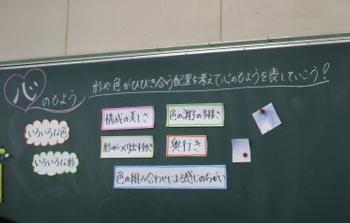 心のもよう
形や色がひびき合う配置を考えて心のもようを表していこう!
いろいろな色
いろいろな形
構成の美しさ
色の調子の多様さ
奥行き
色の組み合わせによる感じのちがい